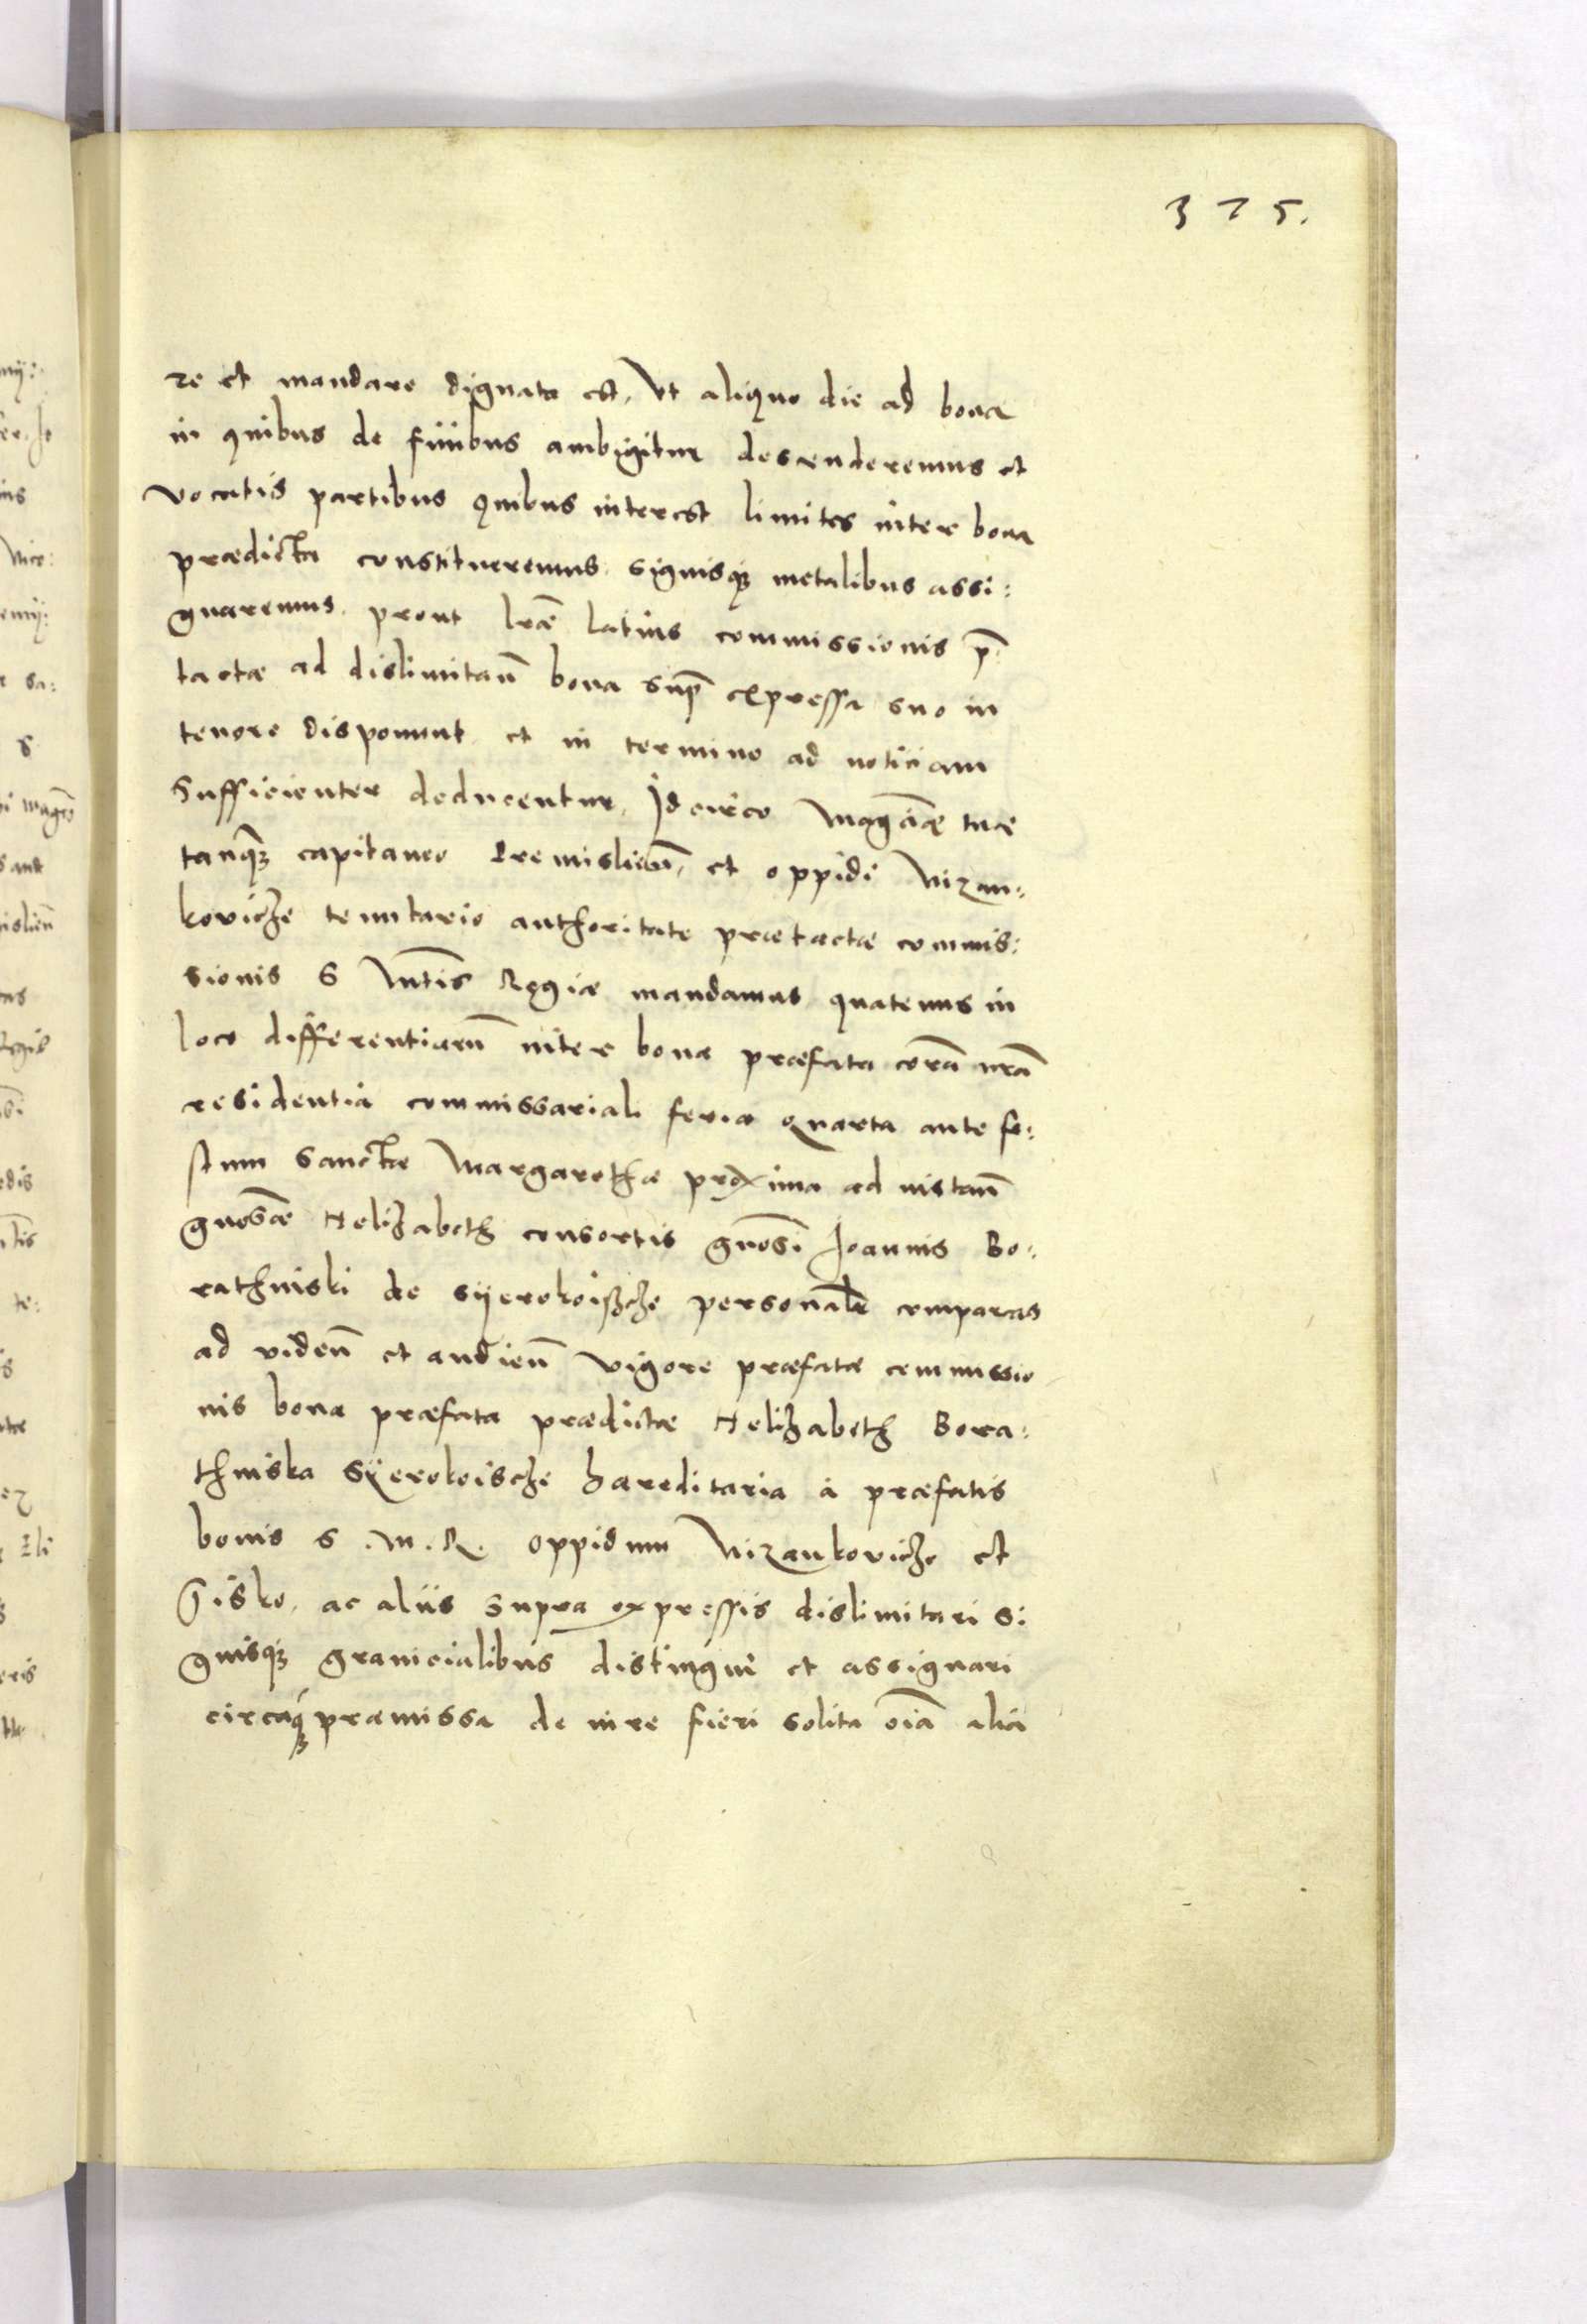 375.
re et mandare dignata est, Vt aliquo die ad bona
in quibus de finibus ambigitur descenderemus et
vocatis partibus quibus interest limites inter bona
prædicta constitueremus, signisq₃ metalibus assi:
gnaremus, prout lræ̃ latius commissionis p̃:
tactæ ad dislimitan̄ bona sup̄ expressa suo in
tenore disponunt et in termino ad noticiam
sufficienter deducentur, Idcirco Mag᷑ciæ tuæ
tanq₃ capitaneo Premislien̄, et oppidi Nizan:
koviche tenutario authoritate prætactæ commis:
sionis S Mtis Regiæ mandamus quatenus in
loco differentiarū inter bona præfata corā nrā
residentia commissariali feria quarta ante fe:
stum Sanctæ Margarethæ proxima ad instan̄
gnosæ Helizabeth consortis gnosi Joannis Bo:
rathniski de Syerokoißche personalr compareas
ad viden̄ et audien̄ vigore præfatæ commissio
nis bona præfata prædictæ Helizabeth Bora:
thniska Syerokoische hæreditaria à præfatis
bonis S. M. R. oppidum Nizankoviche et
Gisko, ac aliis supra expressis dislimitari si
gnisq₃ granicialibus distingui et assignari
circaq₃ præmissa de iure fieri solita oīa alia